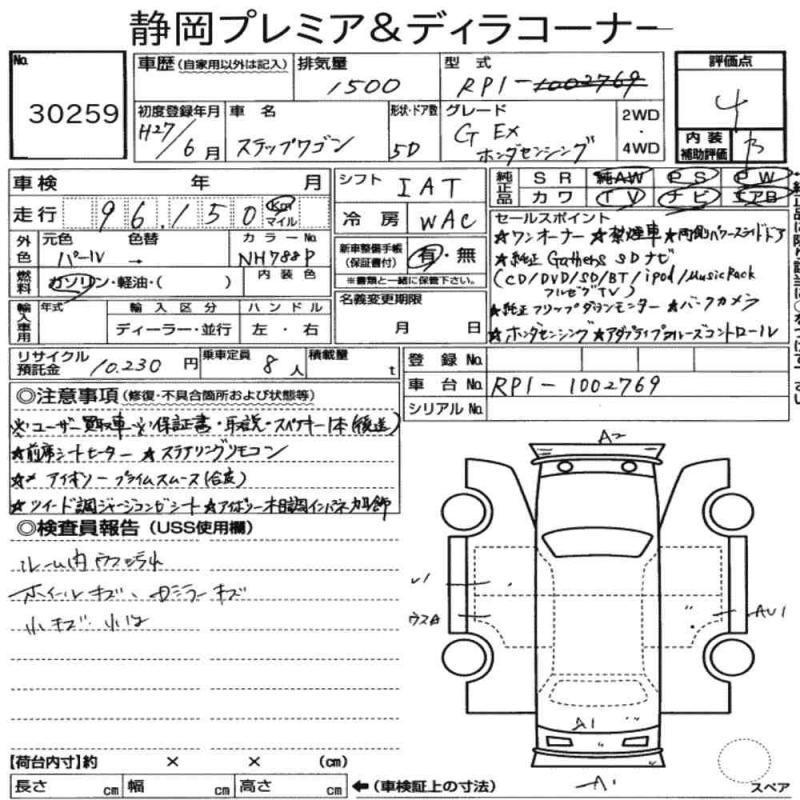 静岡プレミア&ディラコーナー
No. 30259
車歴(自家用以外は記入) 排気量 1500 型式 RP1-1002769 評価点 4
初度登録年月 H27/6月 車名 ステップワゴン 形状・ドア数 5D グレード G EX ホンダセンシング 2WD・4WD 内装補助評価 B
車検 年 月 シフト IAT 純正品 SR 純AW PS PW
走行 96,150 Km マイル 冷房 WAC カワ TV ナビ エアB
外色 元色 パール 色替 → カラーNo. NH788P 新車整備手帳(保証書付) 有・無 ※書類と一緒に保管下さい。
燃料 ガソリン・軽油・( ) 内装色 名義変更期限 月 日
セールスポイント
★ワンオーナー ★禁煙車 ★両側パワースライドドア
★純正 Gathers SDナビ
(CD/DVD/SD/BT/iPod/Music Rack
フルセグTV)
★純正フリップダウンモニター ★バックカメラ
★ホンダセンシング ★アダプティブクルーズコントロール
輸入車用 年式 輸入区分 ディーラー・並行 ハンドル 左・右
リサイクル預託金 10.230円 乗車定員 8人 積載量 t 登録No.
車台No. RP1-1002769
シリアルNo.
◎注意事項(修復・不具合箇所および状態等)
※・ユーザー買取車 ※保証書・取説・スペアキー1本(後送)
★前席シートヒーター ★ステアリングリモコン
プライムスムース(合皮)
★ツイード調 コンビシート 木目調インパネ加飾
◎検査員報告(USS使用欄)
ルーム内
ホイールキズ、 ミラーキズ
小キズ 小凹
A2
U1
ウスA
AU1
A1
A1
【荷台内寸】約 × × (cm)
長さ cm 幅 cm 高さ cm ←(車検証上の寸法) スペア